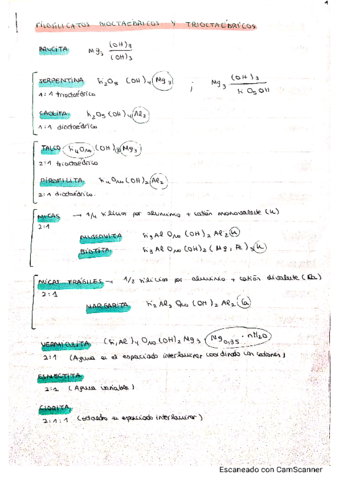 1
FILOSILICATOS DIOCTAÉDRICOS Y TRIOCTAÉDRICOS
BRUCITA Mg3 (OH)3
(OH)3
SERPENTINA Si2O5 (OH)4 Mg3 ; Mg3 (OH)3
Si O5 OH
1:1 trioctaédrico
CAOLITA Si2O5 (OH)4 Al2
1:1 dioctaédrica
TALCO Si4O10 (OH)2 Mg3
2:1 trioctaédrico
PIROFILITA Si4O10 (OH)2 Al2
2:1 dioctaédrica
MICAS → 1/4 silicios por aluminio + catión monovalente (K)
2:1
MUSCOVITA Si3Al O10 (OH)2 Al2 K
BIOTITA Si3Al O10 (OH)2 (Mg, Fe) K
MICAS FRÁGILES → 1/2 silicios por aluminio + catión divalente (Ca)
2:1
MARGARITA Si2 Al2 O10 (OH)2 Al2 Ca
VERMICULITA (Si,Al)4 O10 (OH)2 Mg3 Mg0,35 · nH2O
2:1 (Agua en el espaciado interlaminar coordinado con cationes)
ESMECTITA
2:1 (Agua variable)
CLORITA
2:1:1 (octaedro en espaciado interlaminar)
Escaneado con CamScanner